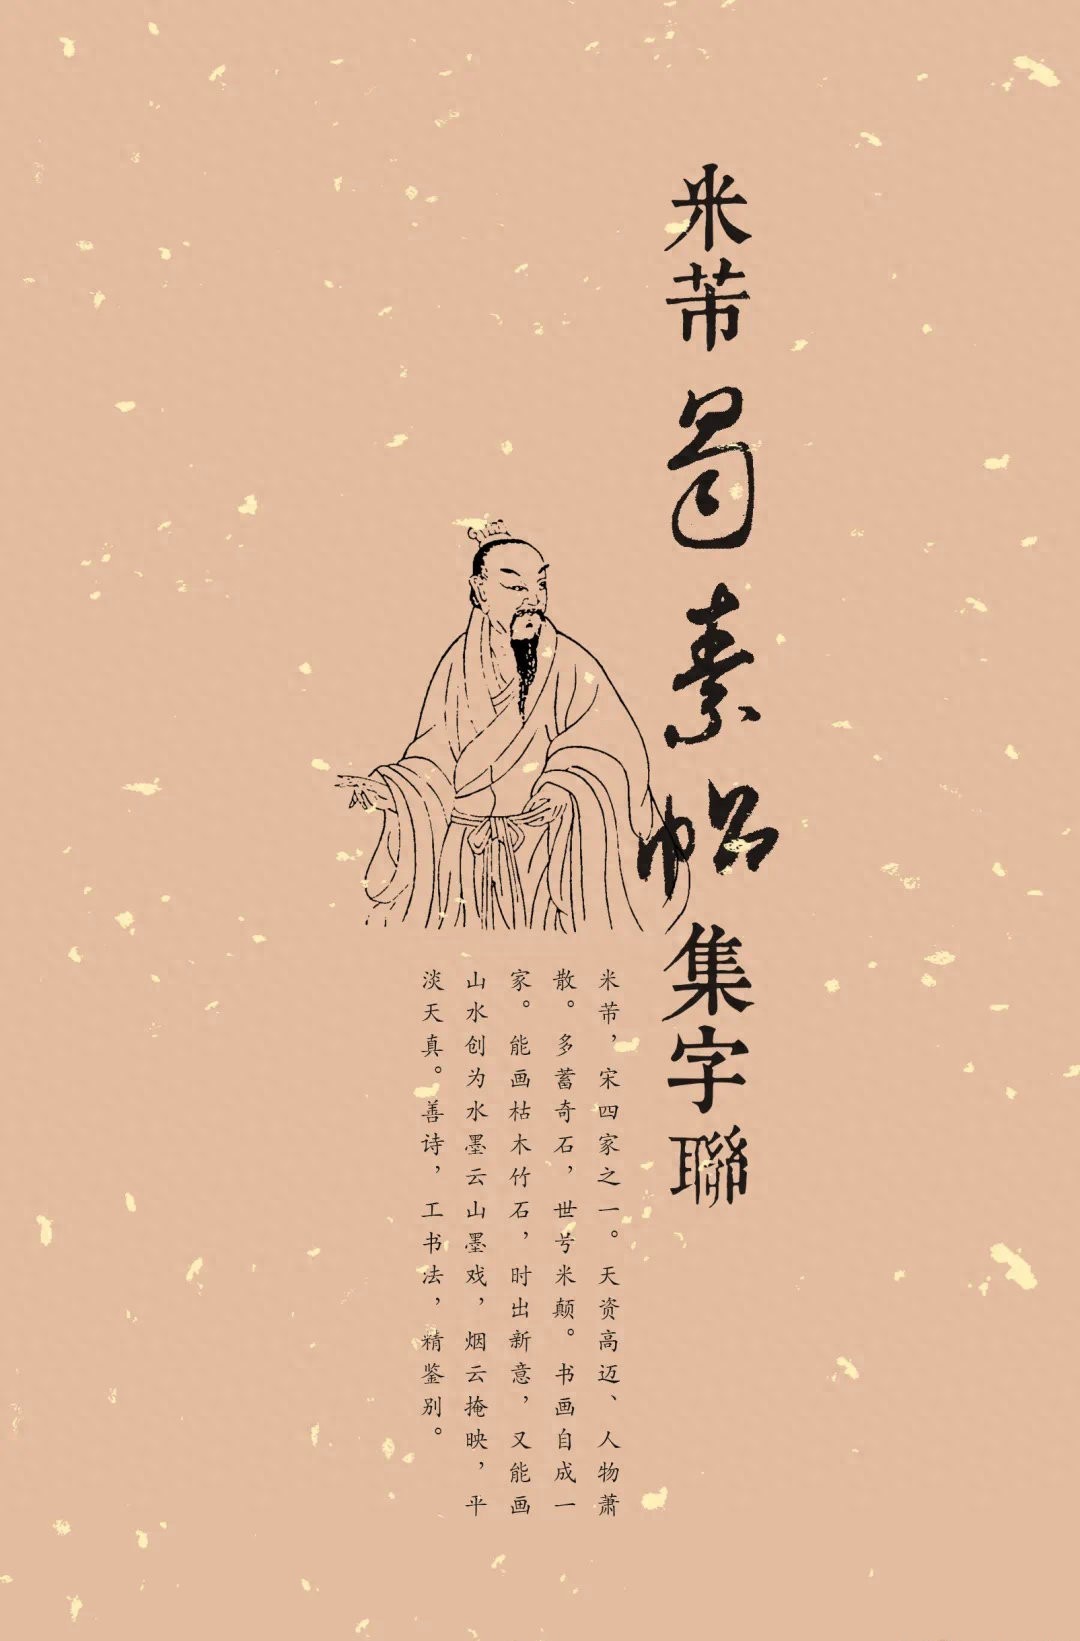 米芾蜀素帖集字聯
米芾，宋四家之一。天资高迈、人物萧
散。多蓄奇石，世号米颠。书画自成一
家。能画枯木竹石，时出新意，又能画
山水创为水墨云山墨戏，烟云掩映，平
淡天真。善诗，工书法，精鉴别。